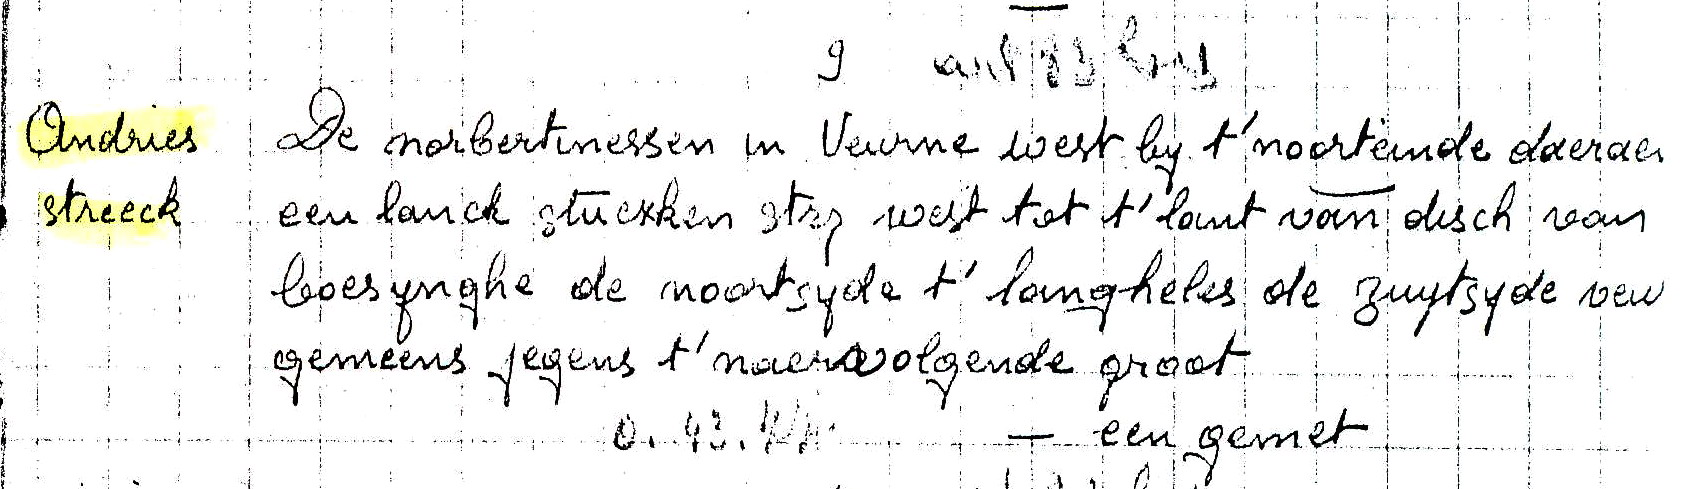 9 art 83 bis
Andries De norbertinessen in Veurne west by t'noorteinde daeraen
streeck een lanck stuckxken strz west tot t'lant van disch van
boesynghe de noortsyde t'langheles de zuytsyde
gemeens jegens t'naervolgende groot
0. 43. — een gemet